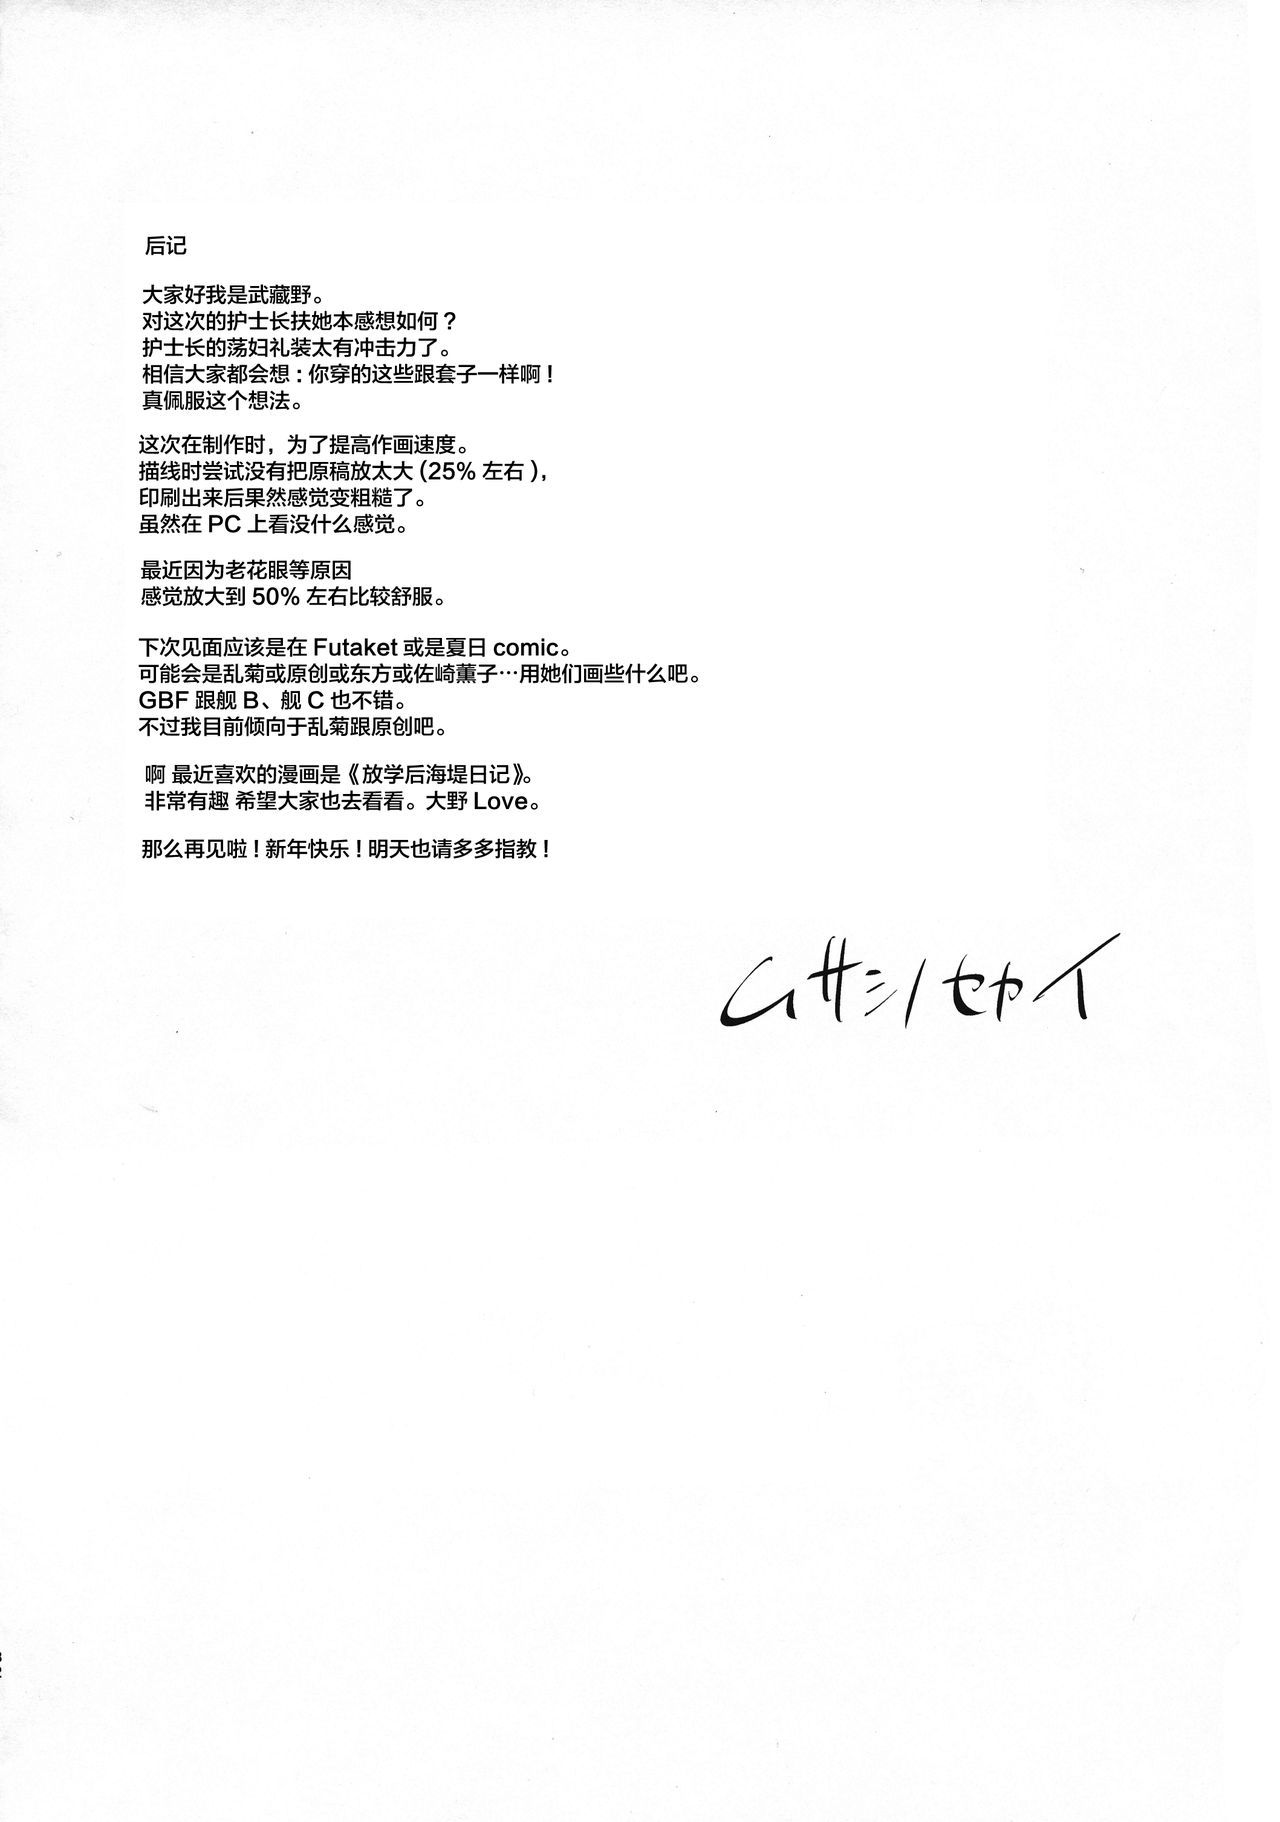 后记
大家好我是武藏野。
对这次的护士长扶她本感想如何？
护士长的荡妇礼装太有冲击力了。
相信大家都会想：你穿的这些跟套子一样啊！
真佩服这个想法。
这次在制作时，为了提高作画速度。
描线时尝试没有把原稿放太大（25% 左右），
印刷出来后果然感觉变粗糙了。
虽然在 PC 上看没什么感觉。
最近因为老花眼等原因
感觉放大到 50% 左右比较舒服。
下次见面应该是在 Futaket 或是夏日 comic。
可能会是乱菊或原创或东方或佐崎薰子…用她们画些什么吧。
GBF 跟舰 B、舰 C 也不错。
不过我目前倾向于乱菊跟原创吧。
啊 最近喜欢的漫画是《放学后海堤日记》。
非常有趣 希望大家也去看看。大野 Love。
那么再见啦！新年快乐！明天也请多多指教！
ムサシノセカイ